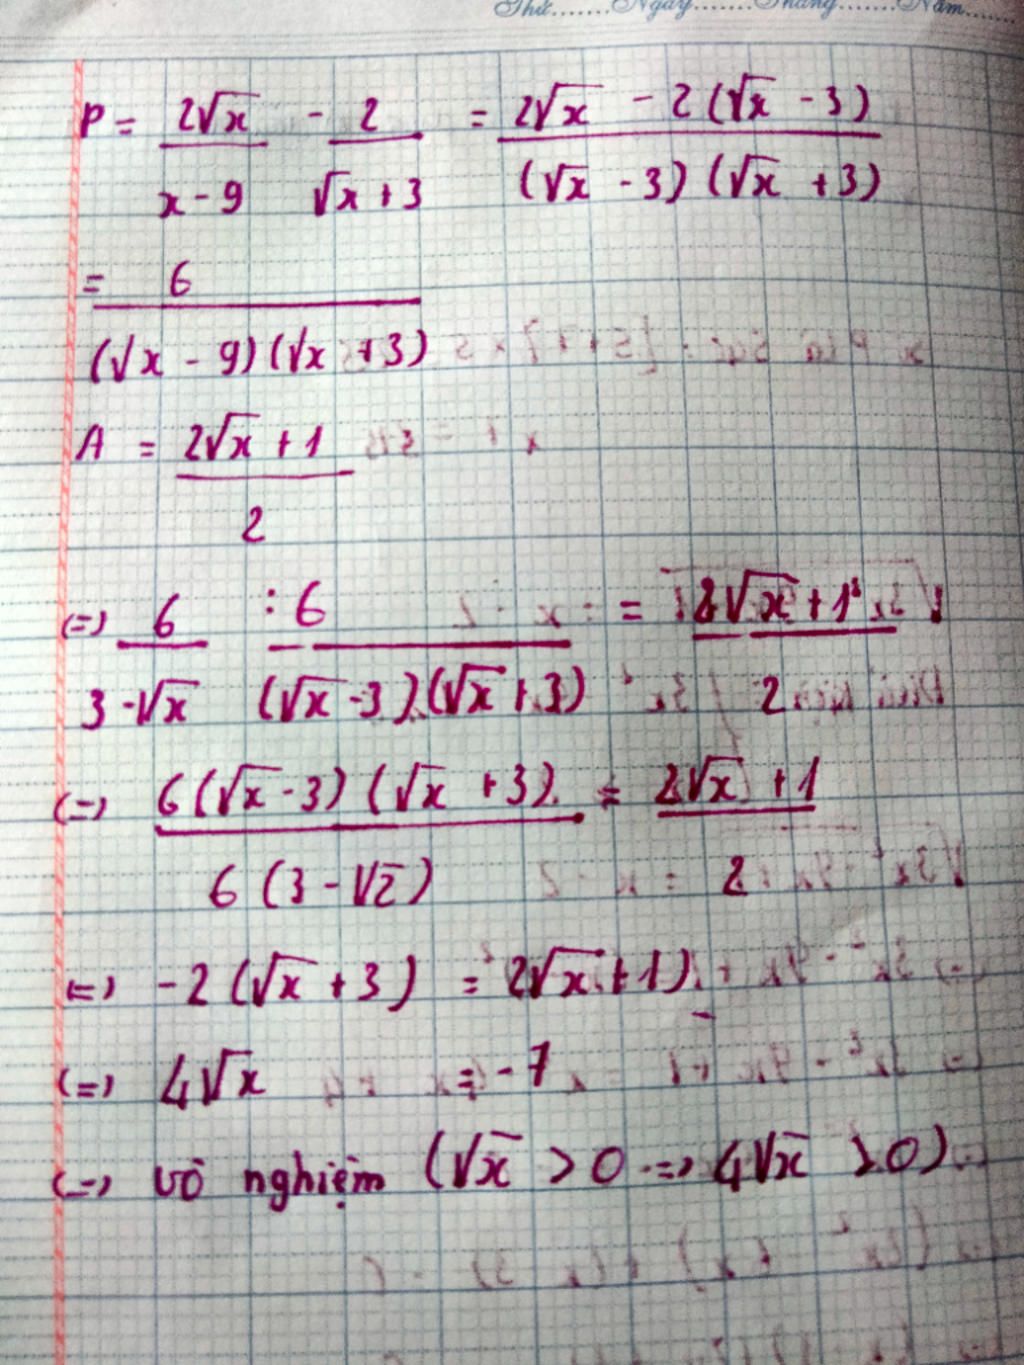 Thứ.......Ngày.......Tháng.......Năm.......
P = 2√x / x - 9 - 2 / √x + 3 = 2√x - 2(√x - 3) / (√x - 3)(√x + 3)
= 6 / (√x - 9)(√x + 3)
A = 2√x + 1 / 2
(=) 6 / 3 - √x : 6 / (√x - 3).(√x + 3) = 2√x + 1 / 2
(=) 6(√x - 3)(√x + 3) / 6(3 - √2) = 2√x + 1 / 2
(=) -2(√x + 3) = 2√x + 1)
(=) 4√x = -7
(=) vô nghiệm (√x > 0 => 4√x > 0)